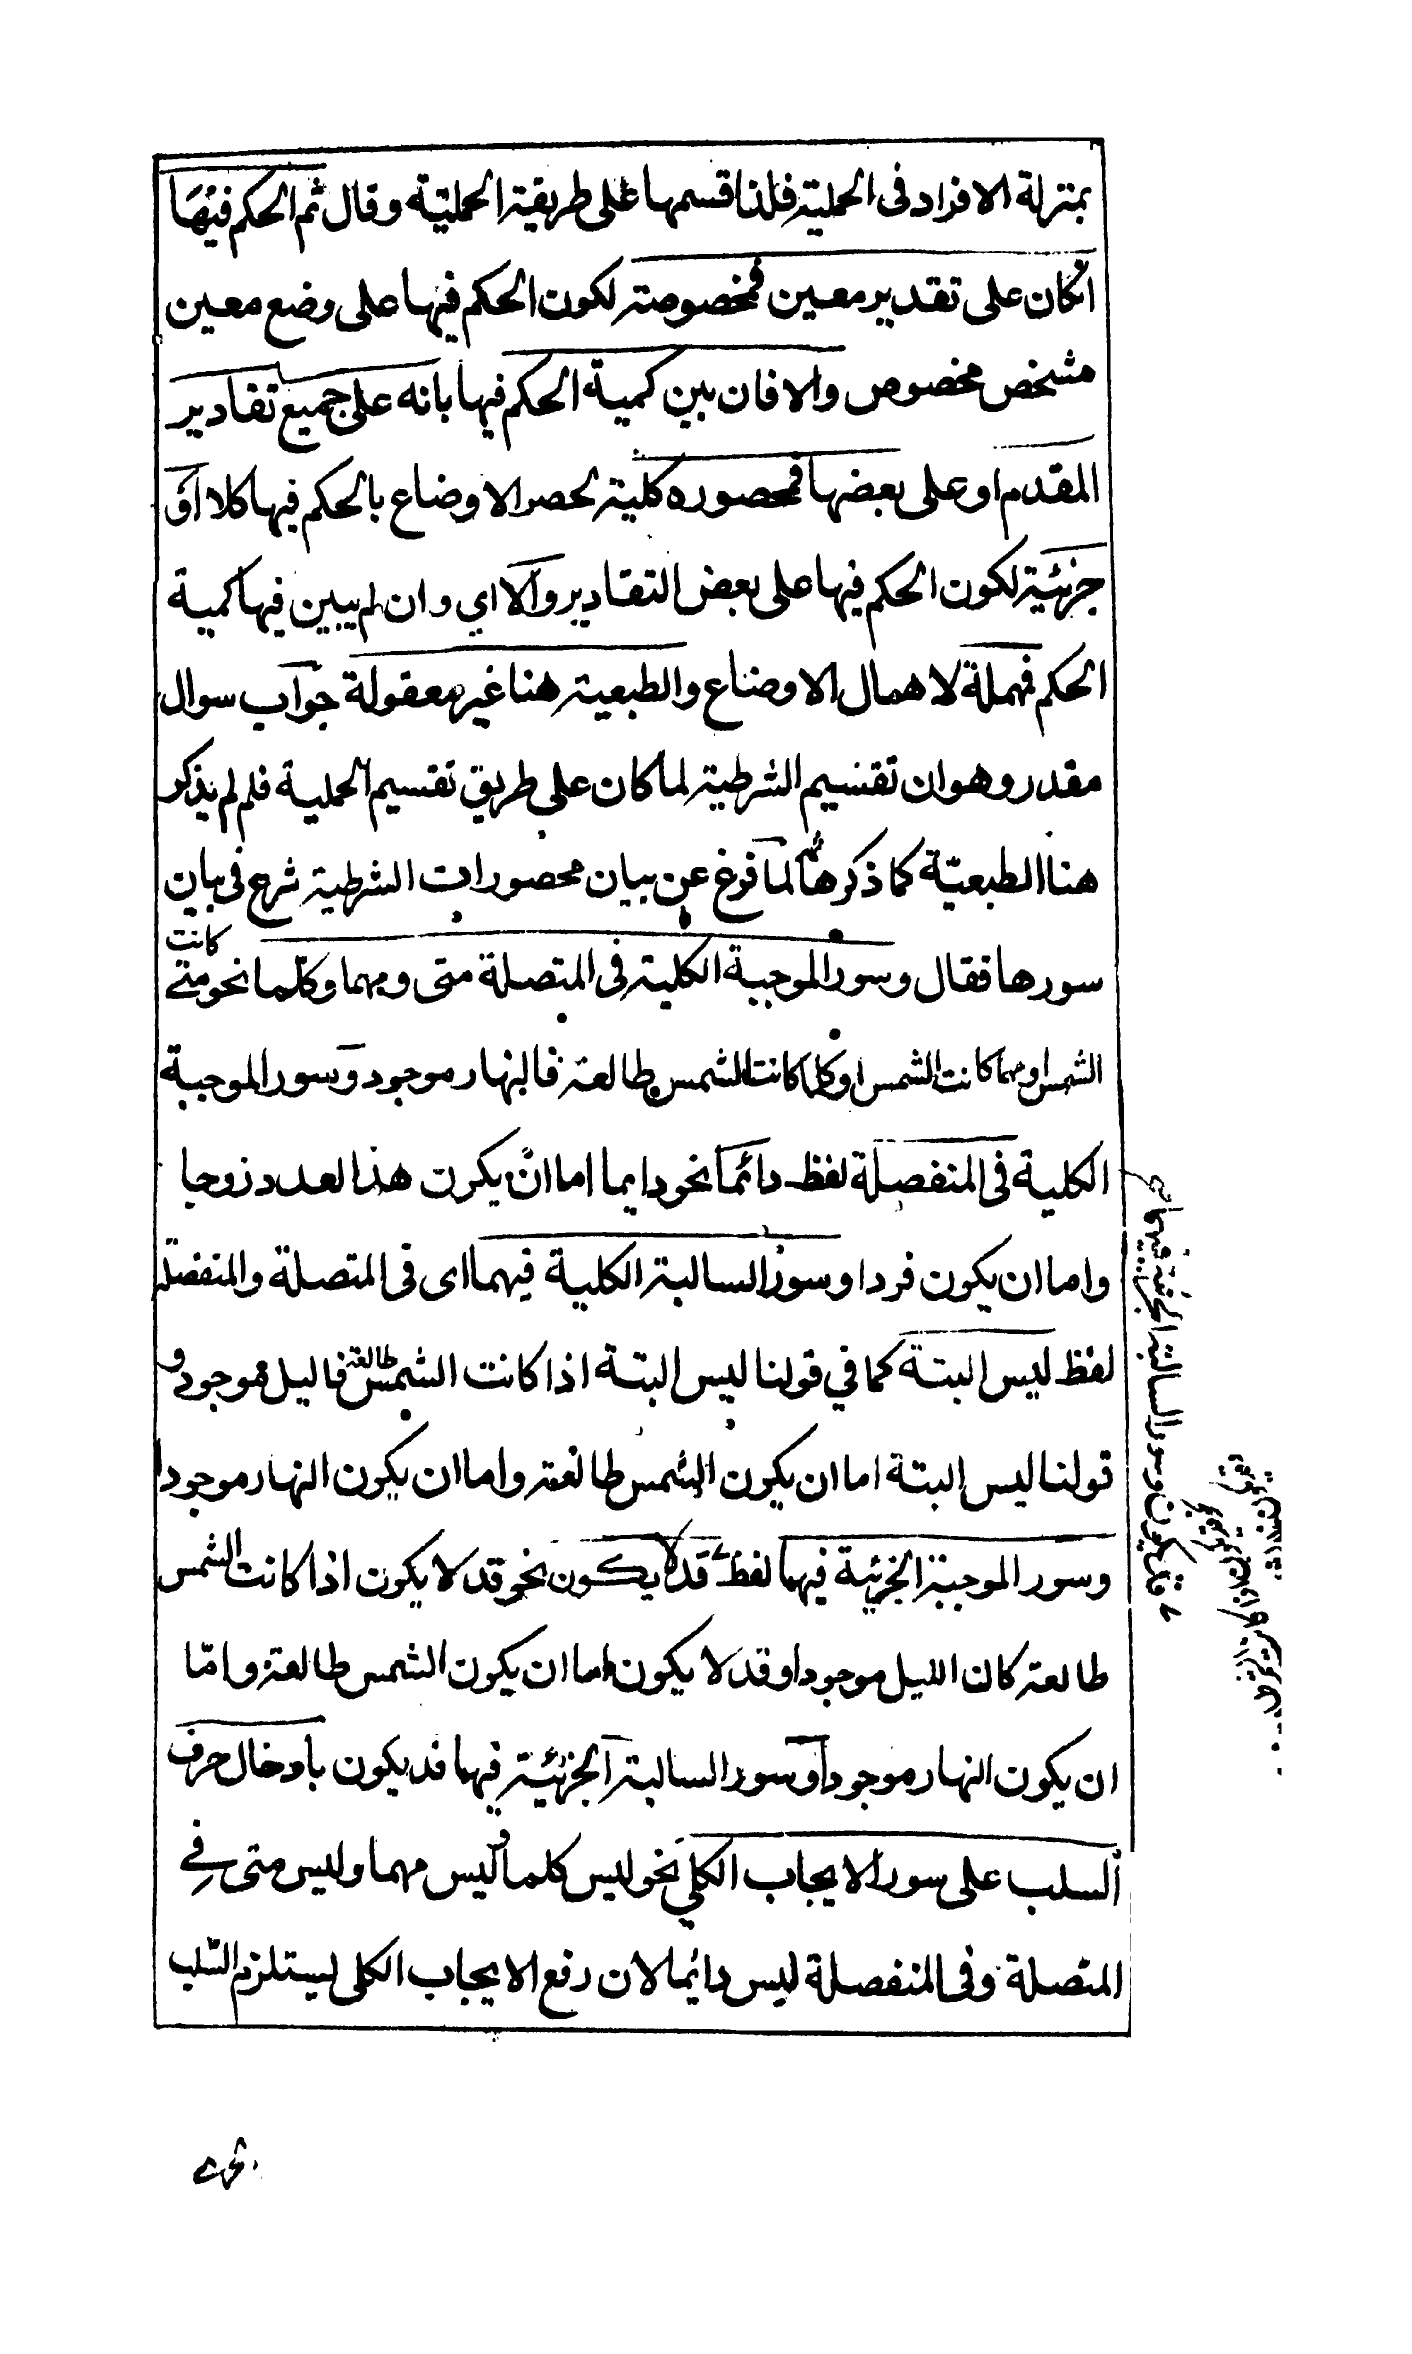 بمنزلة الافراد فى الحملية فلذا قسمها على طريقية الحمليّة وقال ثم الحكم فيها
انكان على تقدير معين فمخصوصة لكون الحكم فيها على وضع معين
مشخص مخصوص والا فان بين كمية الحكم فيها بانه على جميع تقادير
المقدم او على بعضها فمحصوره كلية لحصر الاوضاع بالحكم فيها كلا او
جزئية لكون الحكم فيها على بعض التقادير والا اي وان لم يبين فيها كمية
الحكم فمهملة لاهمال الاوضاع والطبعية هنا غير معقولة جواب سوال
مقدر وهو ان تقسيم الشرطية لما كان على طريق تقسيم الحملية فلم لم يذكر
هنا الطبعيّة كما ذكرها ثمه لما فرغ عن بيان محصورات الشرطية شرع فى بيان
سورها فقال وسور الموجبة الكلية فى المتصلة متى ومهما وكلما نحو متے كانت
الشمس او مهما كانت الشمس او كلما كانت الشمس طالعة فالنهار موجود وسور الموجبة
الكلية فى المنفصلة لفظ دائما نحو دايما اما ان يكون هذا العدد زوجا
واما ان يكون فردا وسور السالبة الكلية فيهما اى فى المتصلة والمنفصلة
لفظ ليس البتة كما في قولنا ليس البتة اذا كانت الشمس طالعة فاليل موجود و
قولنا ليس البتة اما ان يكون الشمس طالعة واما ان يكون النهار موجودا
وسور الموجبة الجزئية فيهما لفظ قد لا يكون نحو قد لا يكون اذا كانت الشمس
طالعة كان الليل موجودا وقد لا يكون اما ان يكون الشمس طالعة وامّا
ان يكون النهار موجودا وسور السالبة الجزئية فيهما قد يكون بادخال حرف
السلب على سور الايجاب الكلي نحو ليس كلما وليس مهما وليس متى فے
المتصلة وفى المنفصلة ليس دائما لان رفع الايجاب الكلى يستلزم السّلب
قد يكون وسور السالبة الجزئية فيهما